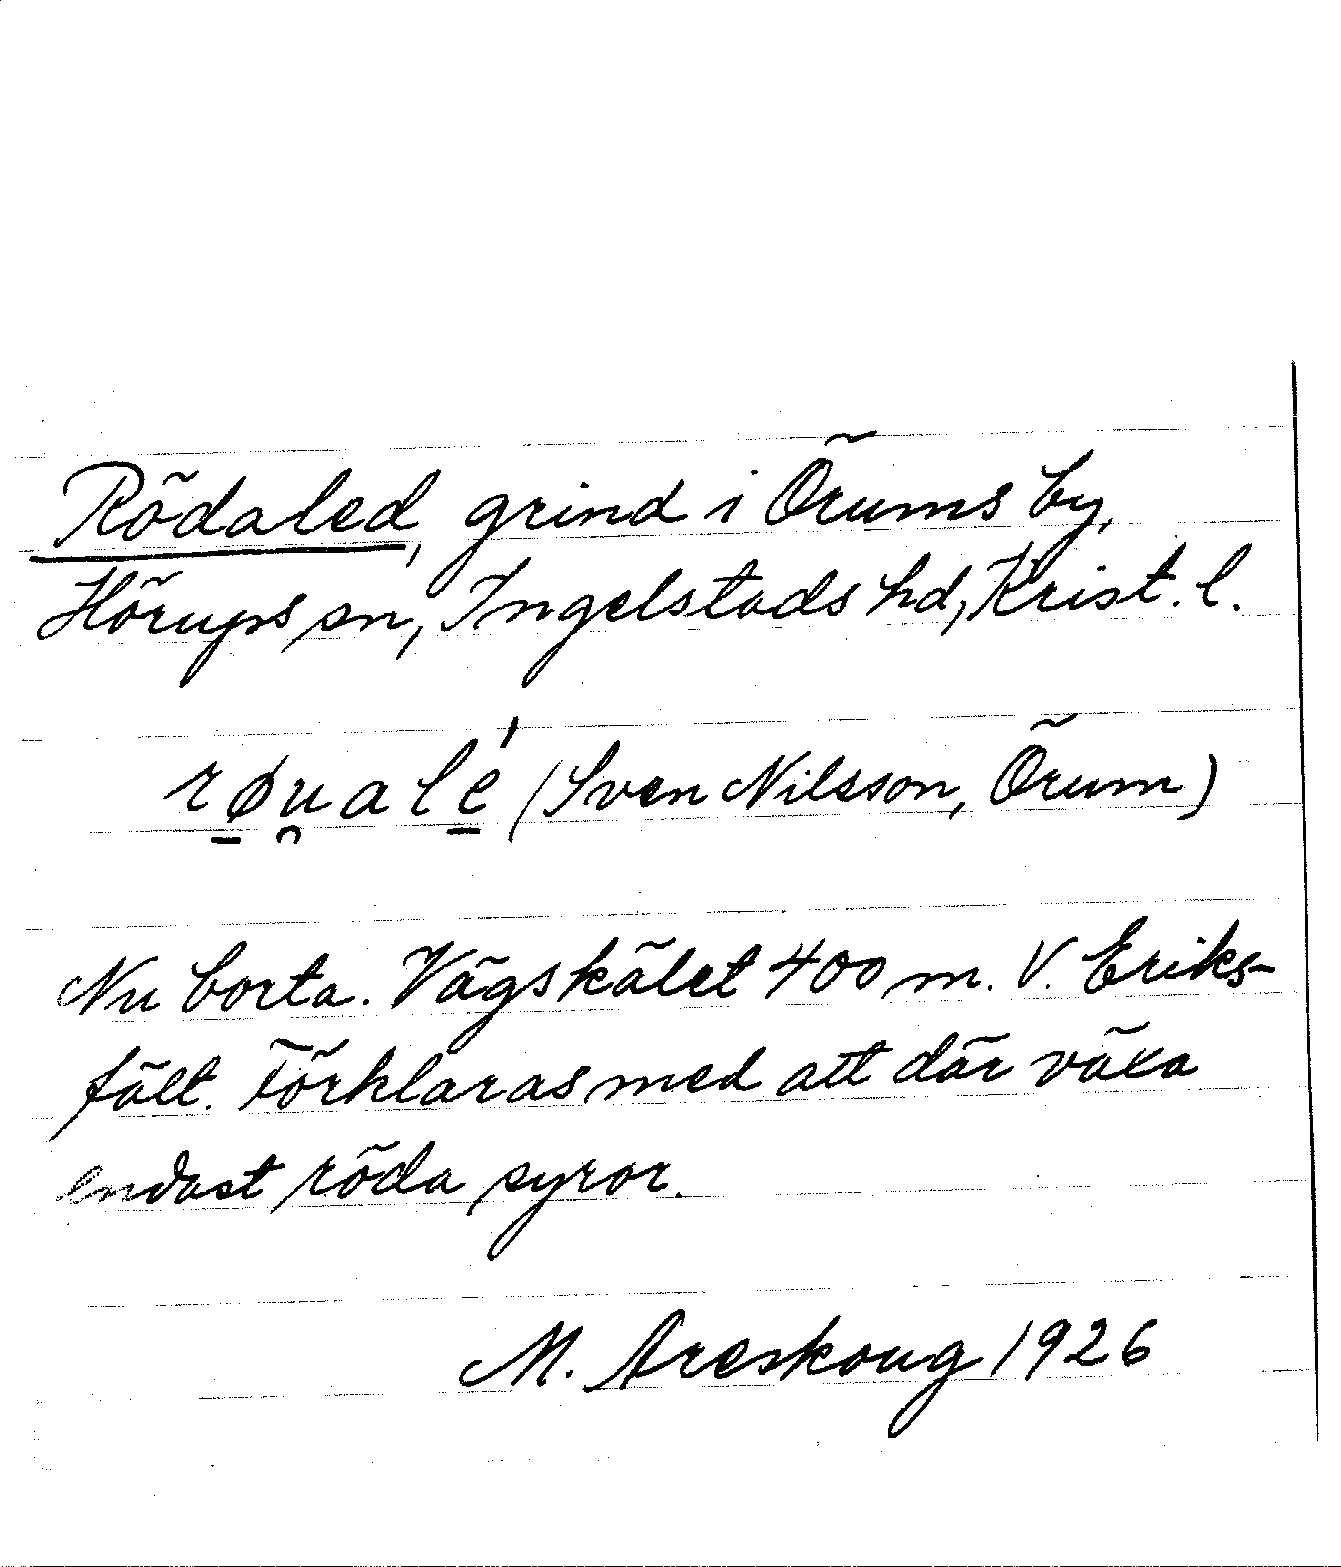 Rödaled, grind i Örums by,
Hörups sn, Ingelstads hd, Krist. l.
rø̱u̯alé̱ (Sven Nilsson, Örum)
Nu borta. Vägskälet 400 m. V. Eriks-
fält. Förklaras med att där växa
endast röda syror.
M. Areskoug 1926